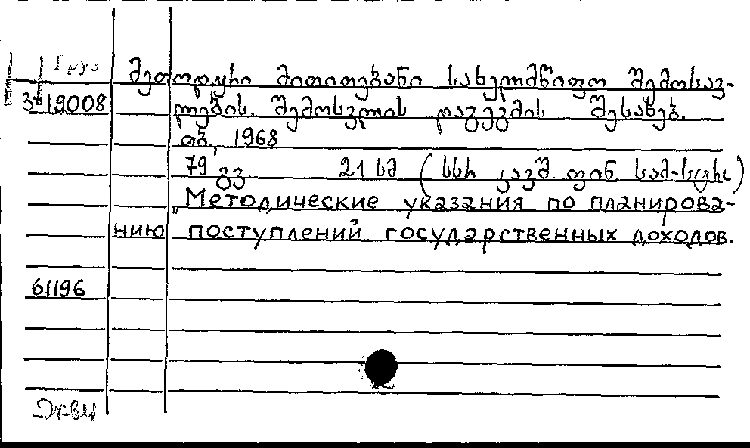 მეთოდური მითითებანი სახელმწიფო შემოსავ-
ლების შემოსვლის დაგეგმის შესახებ.
თბ., 1968
79 გვ. 21 სმ (სსრ კავშ. ფინ. სამ-სტრო)
Методические указания по планирова-
нию поступлений государственных доходов.
61196